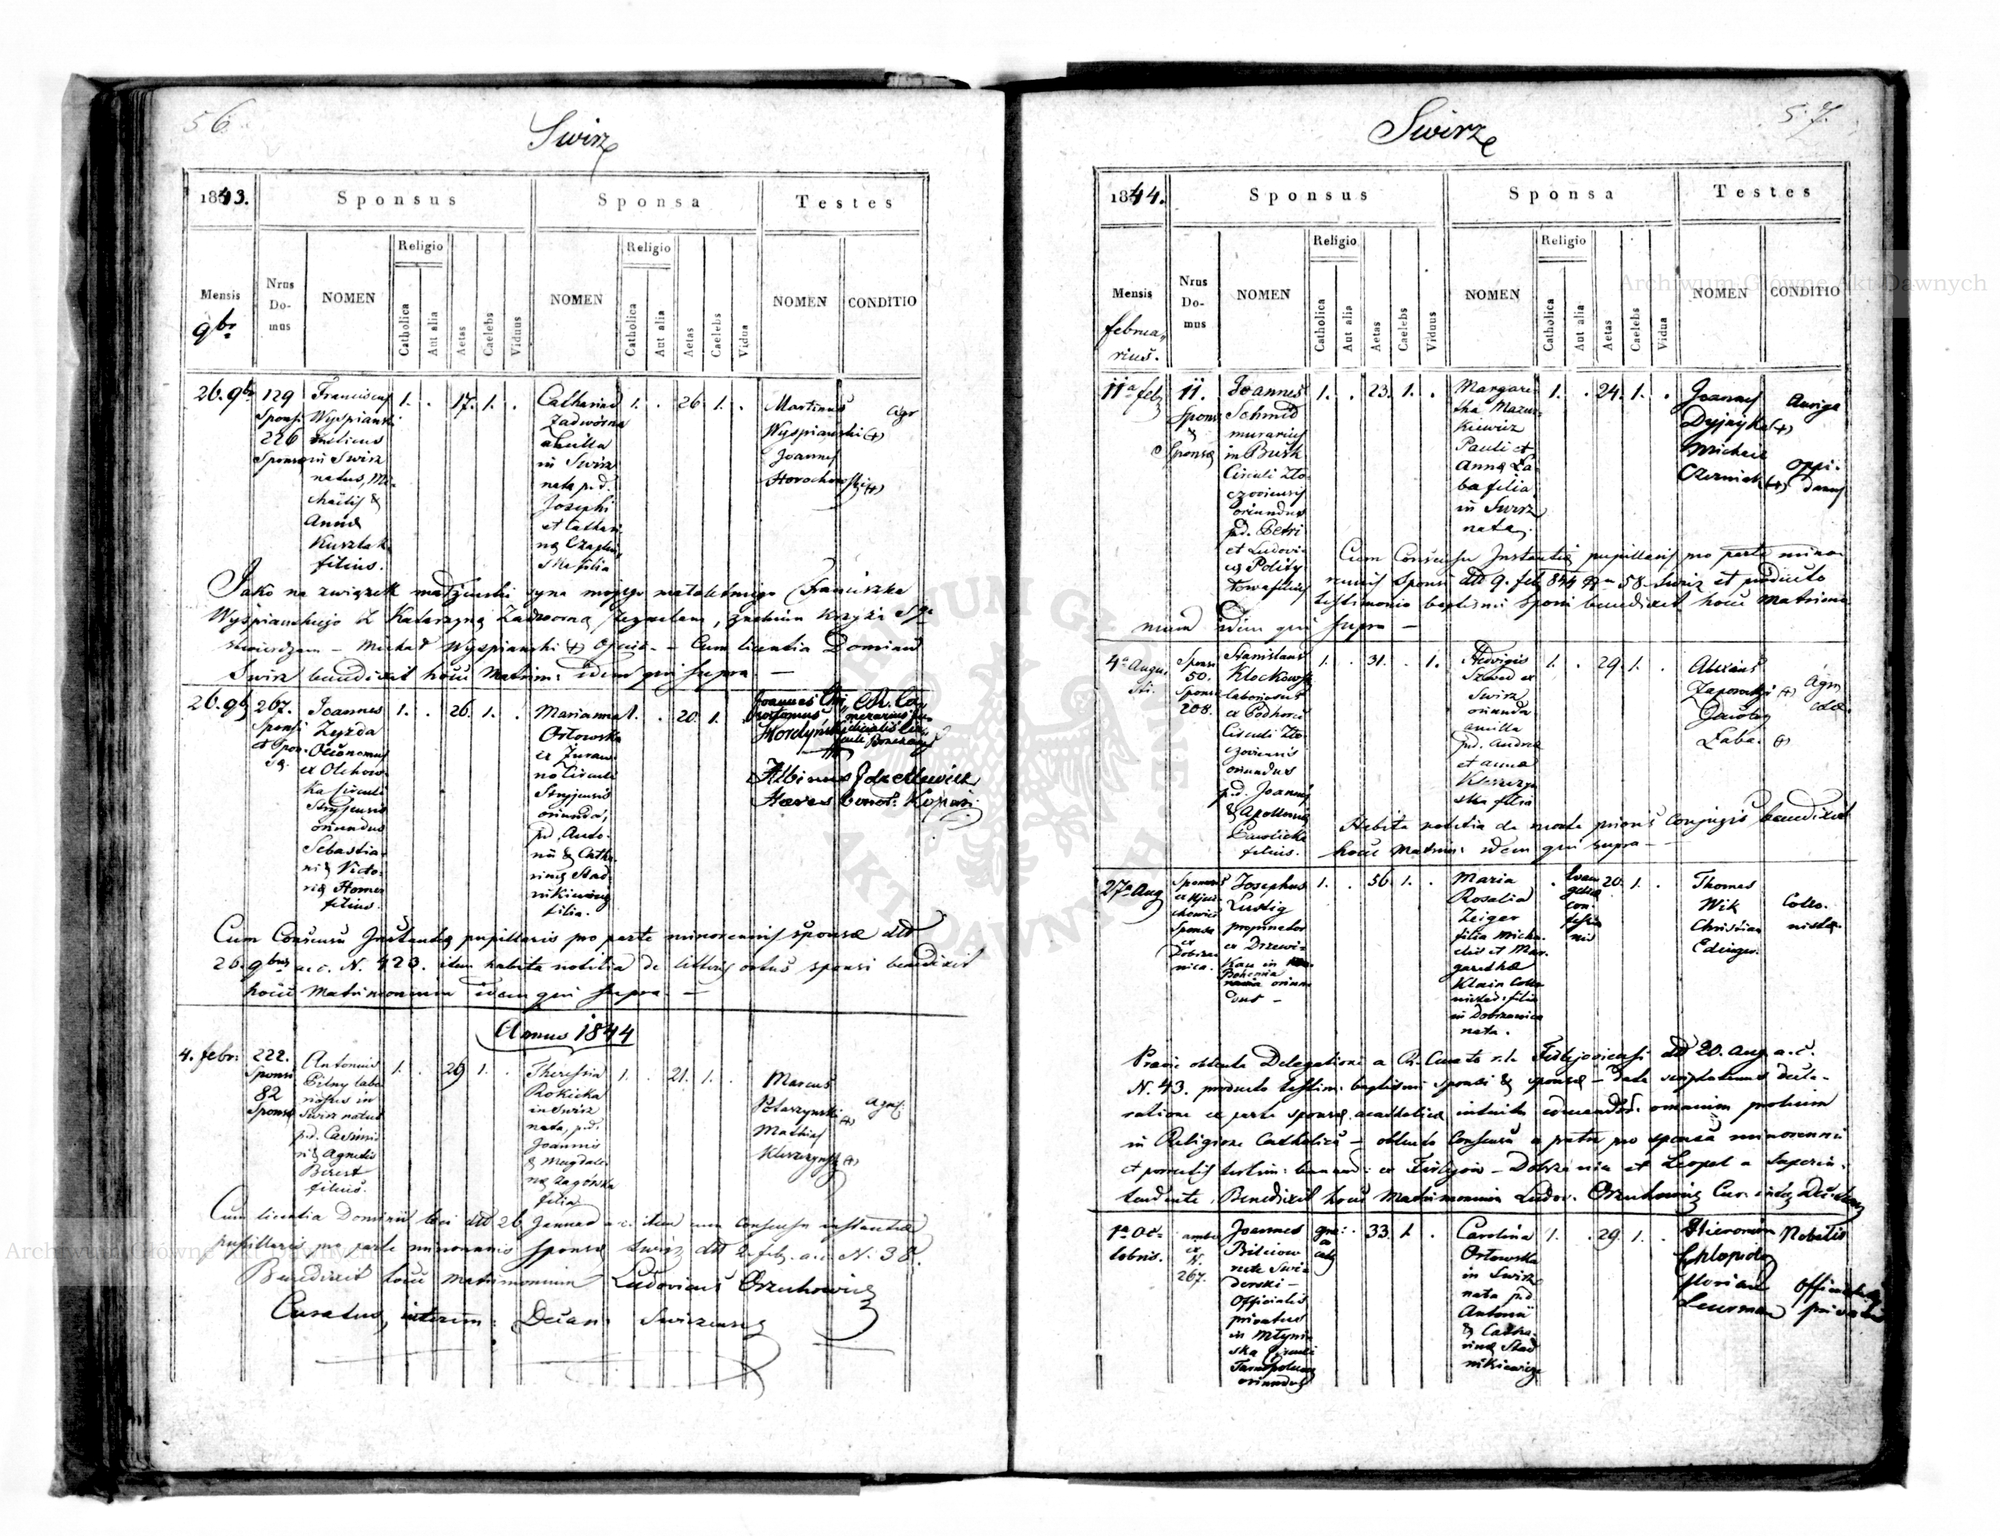 56.
Swirz
1843.
Sponsus
Sponsa
Testes
Mensis
9br
Nrus
Do-
mus
NOMEN
Religio
Catholica
Aut alia
Aetas
Caelebs
Viduus
NOMEN
Religio
Catholica
Aut alia
Aetas
Caelebs
Vidua
NOMEN
CONDITIO
26. 9br
129
Sponsi
226
Sponsa
Franciscus
Wyspianski
in Swirz
natus, Mi-
chaelis &
Anna
filius.
1. . 17. 1. .
Catharina
Zadworna
ancilla
in Swirz
nata p.d.
Josephi
et Cathari
filia
1. . 26. 1. .
Martinus
Wyspianski (+)
Joannes
Horochowski (+)
Agr
Jako na związek małżeński syna mojego małoletniego Franciszka
Wyspianskiego z Katarzyną Zadworną zezwalam, znakiem krzyża Sgo
stwierdzam – Michał Wyspianski (+) Ojciec – Cum licentia Dominii
Swirz benedixit hocce Matrim: idem qui supra –
26. 9br
267.
Sponsi
et Spon-
sa.
Joannes
Zyzda
Oeconomus
ex Olchow-
ka Circuli
Stryjensis
oriundus
Sebastia-
ni & Victo-
ria Homer
filius.
1. . 26. 1. .
Marianna
Orlowska
ex Zuraw-
no Circuli
Stryjensis
oriunda,
p.d. Anto-
nii & Catha-
rina Stad
nikiewicz
filia.
1. . 20. 1.
Joannes
Albinus
Cum Consensu Instantiae pupillaris pro parte minorennis sponsae dto
26. 9bris a.c. N. 423. item habita notitia de litteris ortus sponsi benedixit
hocce Matrimonium idem qui supra –
Annus 1844
4. febr:
222.
Sponsi
82
Sponsa
Antonius
Pilny labo
riosus in
Swirz natus
p.d. Casimi
ri & Agnetis
Berest
filius.
1. . 29 1. .
Theresia
Rokicka
in Swirz
nata, p.d.
Joannis
& Magdale
na Zagorska
filia
1. . 21. 1. .
Marcus
Potaszynski (+)
Mathias
Kleszczynski (+)
Agric.
Cum licentia Dominii loci dto 26 Januar a.c. item cum consensu instantiae
pupillaris pro parte minorennis sponsae Swirz dto 2 feb. a.c. N. 38.
Benedixit hocce Matrimonium Ludovicus Orzechowicz
Curatus, interim: Decan Swirzensis
57.
Swirz
1844.
Sponsus
Sponsa
Testes
Mensis
februa-
rius.
Nrus
Do-
mus
NOMEN
Religio
Catholica
Aut alia
Aetas
Caelebs
Viduus
NOMEN
Religio
Catholica
Aut alia
Aetas
Caelebs
Vidua
NOMEN
CONDITIO
11a feb
11.
Sponsi
&
Sponsa
Joannes
Schmid
murarius
in Busk
Circuli Zlo
czoviensis
oriundus
p.d. Petri
et Ludovi-
ca
filius
1. . 23. 1. .
Margare
tha Mazur
kiewicz
Pauli et
Anna La
ba filia
in Swirz
nata.
1. . 24. 1. .
Joannes
(+)
Michael
Czerniak (+)
Auriga
Oppi-
danus
Cum Consensu Instantiae pupillaris pro parte mino-
rennis sponsi dto 9. feb 844 N 58. Swirz et producto
testimonio baptismi sponsi benedixit hocce Matrimo
nium idem qui supra –
4a Augu
sti.
Sponsi
50.
Sponsa
208.
Stanislaus
Klockowski
laboriosus
ex Podhorce
Circuli Zlo
czoviensis
oriundus
p.d. Joannis
& Apollonia
Pawlicka
filius.
1. . 31. . 1.
Hedvigis
Szwed ex
Swirz
oriunda
ancilla
p.d. Andrea
et Anna
Kleszczyn
ska filia
1. . 29. 1. .
Zaporowski (+)
Laba. (+)
Agri
colae.
Habita notitia de morte prioris Conjugis benedixit
hocce Matrim: idem qui supra –
27a Aug
Sponsa
ex
Dobrza
nica.
Josephus
Lustig
propinator
ex Drzewi-
Bohemia
oriun
dus –
1. . 56 1. .
Maria
Rosalia
Zeiger
filia Micha-
elis et Mar
garetha
Klain Colo
in Dobrzanica
nata.
. Evan
gelica
con-
fessio
nis
20. 1. .
Thomas
Wik
Christian
Edinger.
Colo-
nistae.
Praevie obtenta Delegatione a R. Curato r.l. Firlejoviensi dto 20. Aug. a.c.
N. 43. producto testim: baptismi sponsi & sponsae – data scriptotenus decla-
ratione ex parte sponsae acatholicae intuitu educandae omnium prolium
in Religione Catholica – obtento Consensu a patre pro sponsa minorenni
et porrectis testim: bannor: ex Firlejow – Dobrzanica et Leopol a Superin-
tendente. Benedixit hocce Matrimonium Ludov. Orzechowicz Cur. interim Decanus
1a Oc-
tobris.
ambo
ex
N.
267.
Joannes
Swi-
derski –
Officialis
privatus
in Mlynis
ska Circuli
Tarnopoliensis
oriundus
33. 1. .
Carolina
Orlowska
in Swirz
nata p.d.
Antonii
& Catha-
rina Stad
nikiewicz
1. . 29. 1. .
Hieronim
Florian
Nobilis
Officialis
privatus
Archiwum Główne Akt Dawnych
Archiwum Główne Akt Dawnych
ARCHIWUM GŁÓWNE AKT DAWNYCH